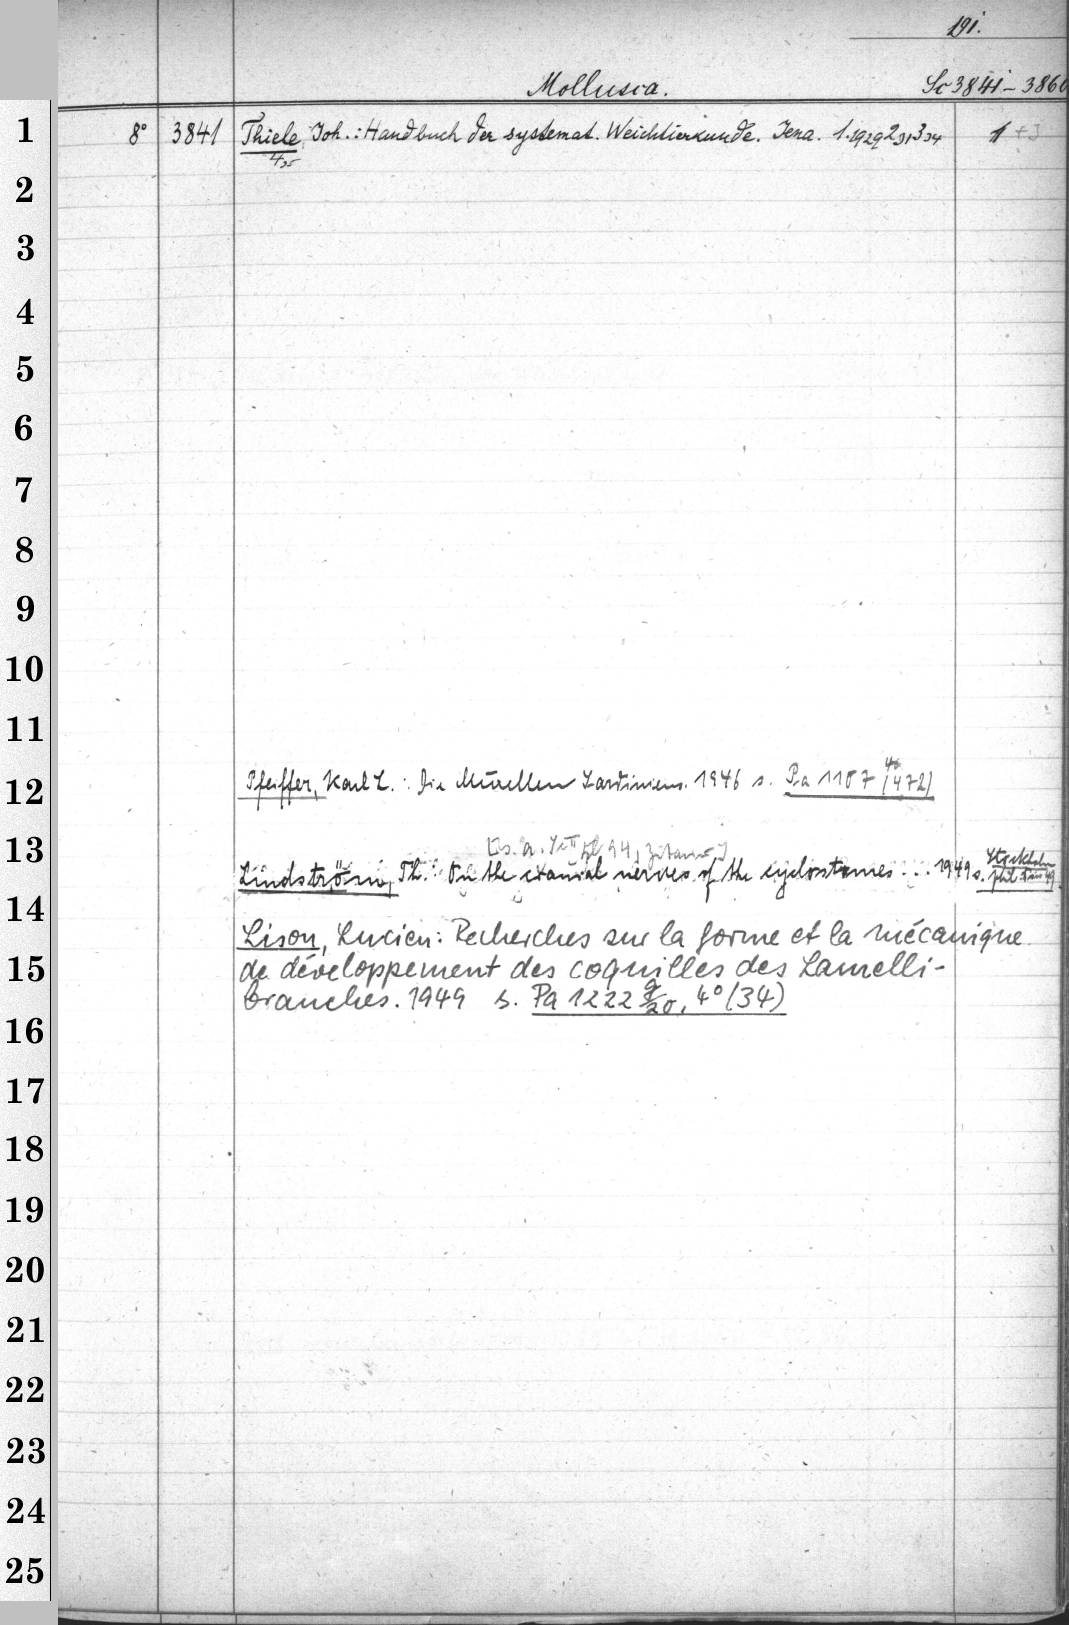 191.
Mollusca. Sc 3841-3860
1 8° 3841 Thiele, Joh.: Handbuch der systemat. Weichtierkunde. Jena. 1.1929 2 31 3 34 1 +3
4 35
2
3
4
5
6
7
8
9
10
11
12 Pfeiffer, Karl L.: Die Murellen Sardiniens. 1946 s. Pa 1187 4° (472)
13 [s. a.
Lindström, Th.: On the cranial nerves of the cyclostomes... 1949 s. Stockholm phil.
14
Lison, Lucien: Recherches sur la forme et la mécanique
15 de développement des coquilles des Lamelli-
branches. 1949 s. Pa 1222 g/20, 4° (34)
16
17
18
19
20
21
22
23
24
25